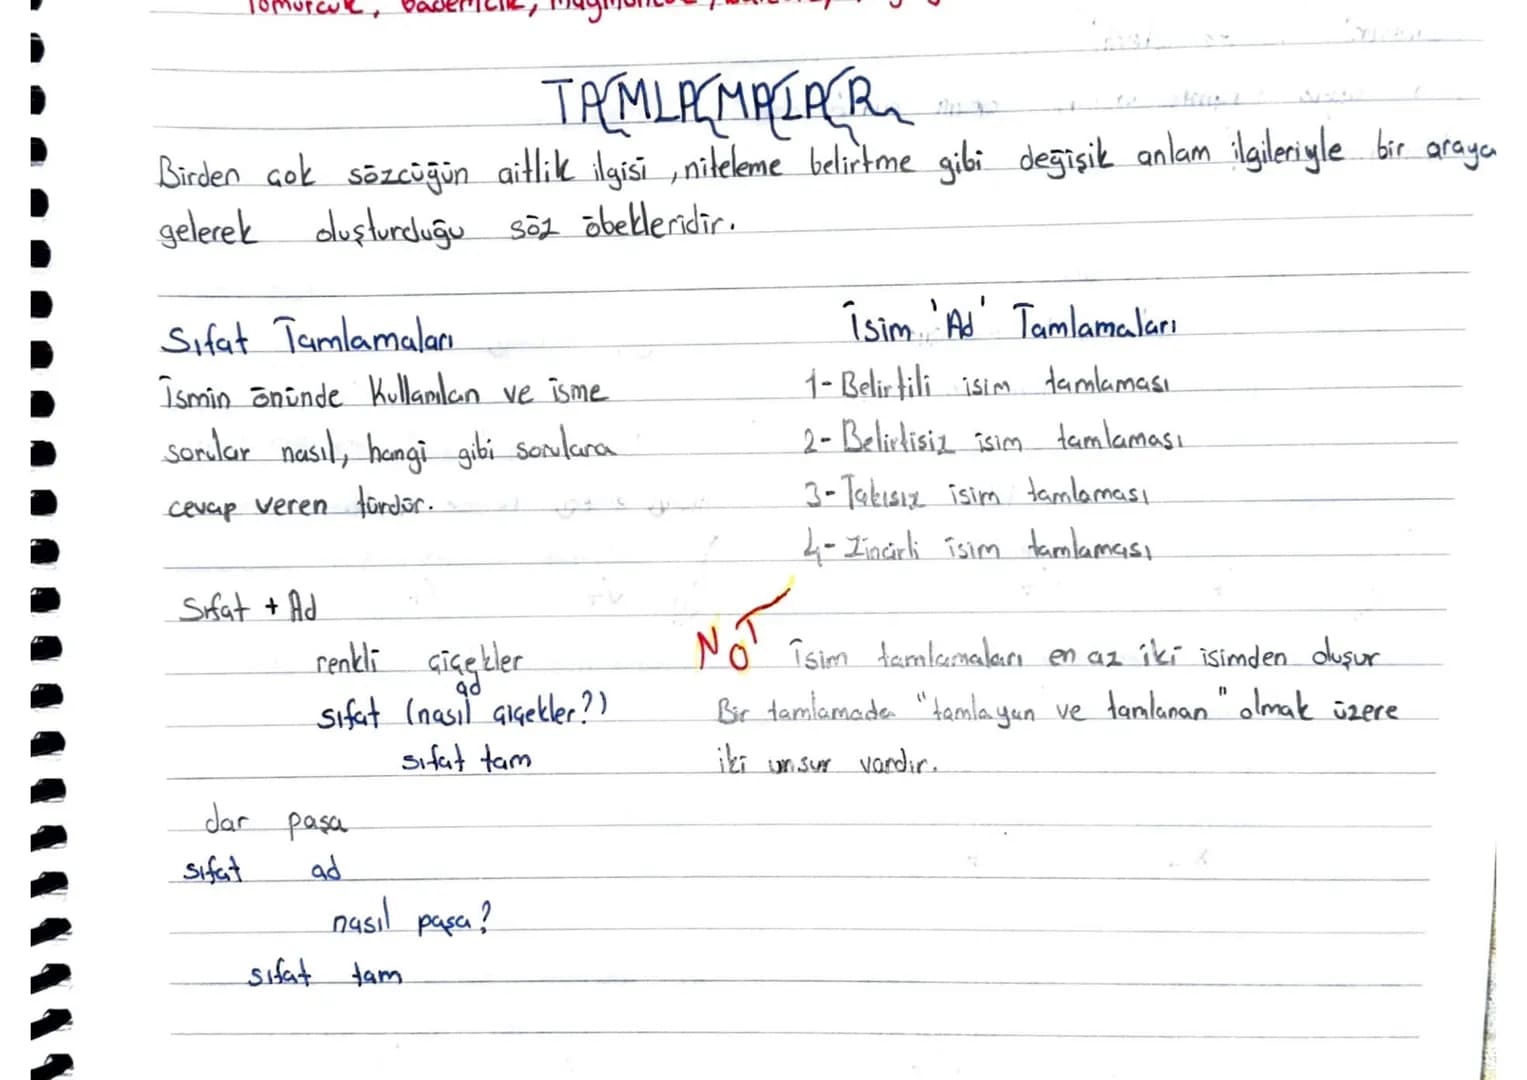 Tomurcuk, bademcik,
TAMLAMALAR
Birden çok sözcüğün aitlik ilgisi, niteleme belirtme gibi değişik anlam ilgileriyle bir araya
gelerek oluşturduğu söz öbekleridir.
Sıfat Tamlamaları
İsmin önünde kullanılan ve isme
sorular nasıl, hangi gibi sorulara
cevap veren türdür.
Sıfat + Ad
renkli çiçekler
ad
sıfat (nasıl çiçekler?)
sıfat tam
dar paşa
sıfat ad
nasıl paşa?
sıfat tam
İsim 'Ad' Tamlamaları
1- Belirtili isim tamlaması
2- Belirtisiz isim tamlaması
3- Takısız isim tamlaması
4- Zincirli isim tamlaması
NOT İsim tamlamaları en az iki isimden oluşur
Bir tamlamada "tamlayan ve tamlanan" olmak üzere
iki unsur vardır.